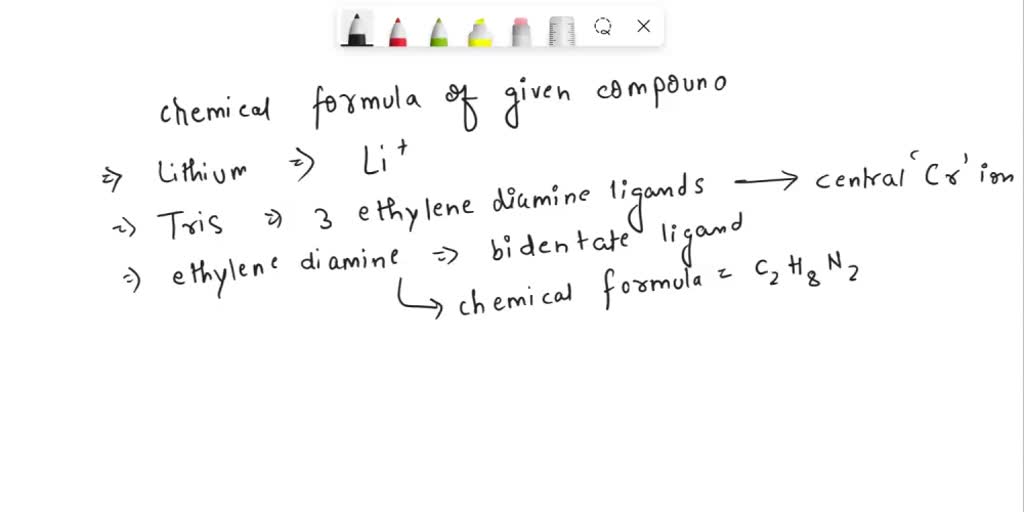 chemical formula of given compound
⇒ Lithium ⇒ Li⁺
⇒ Tris ⇒ 3 ethylene diamine ligands ⟶ central 'Cr' ion
⇒ ethylene diamine ⇒ bidentate ligand
↳ chemical formula = C₂H₈N₂